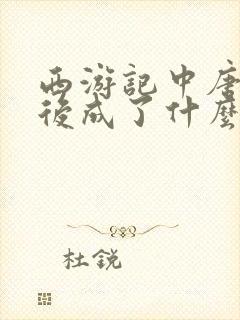 西游記中唐
後成了什麼
杜銳